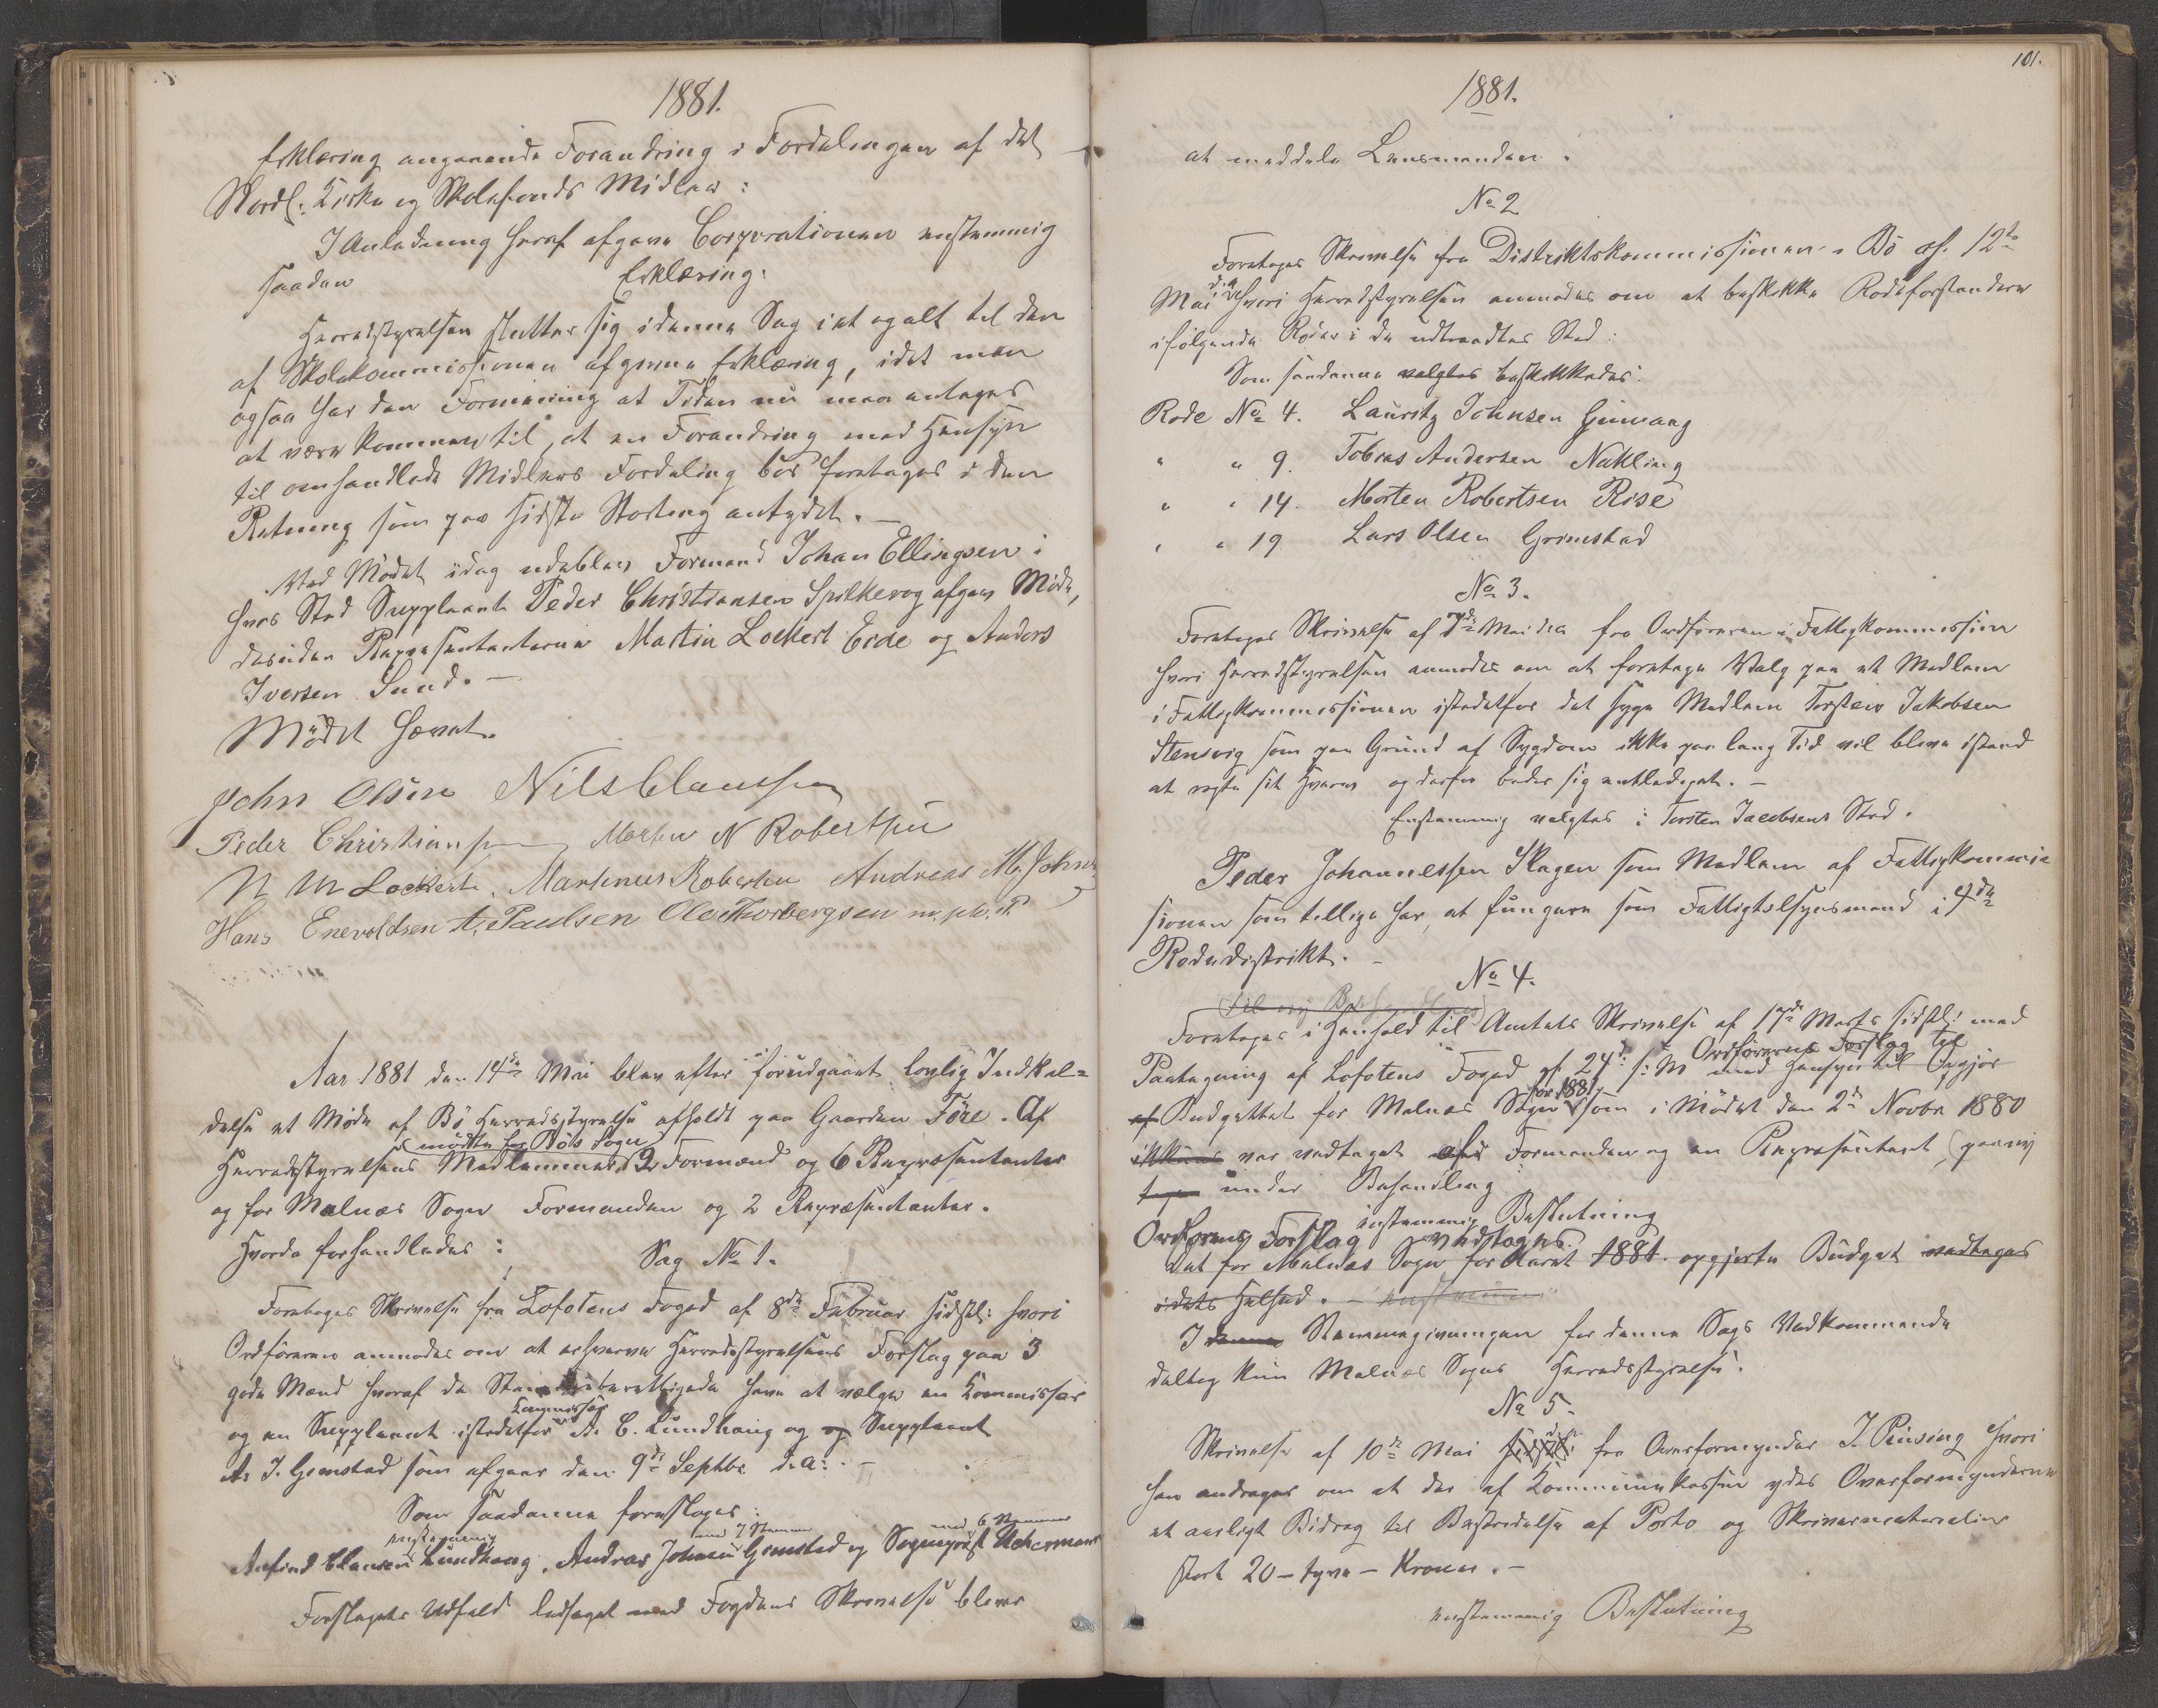 1881.
Erklæring angaaende Forandring i Fordelingen af det
Nordl: Kirke og Skolefonds Midler:
I Anledning heraf afgav Corporationen enstemmig
saadan Erklæring:
Herredsstyrelsen slutter sig i denne Sag i et og alt til den
af Skolekommissionen afgivne Erklæring, idet man
ogsaa har den Formening at Tiden nu maa antages
at være kommen til, at en Forandring med Hensyn
til omhandlede Midlers Fordeling bör foretages i den
Retning som paa sidste Storting antydet. -
Ved Mödet idag udeblev Formand Johan Ellingsen i
hvis Sted Suppleant Peder Christiansen Spilkevog afgav Möde,
desuden Repræsentanterne Martin Lockert Eide og Anders
Iversen Sund. -
Mödet hævet.
John Olsen Nils Claussen
Peder Christiansen Morten N Robertsen
N M Lockert. Martinus Robertsen Andreas M. Johns
Hans Enevoldsen A. Paulsen Ole Thorbergsen m. p. P.
Aar 1881 den 14de Mai blev efter forudgaaet lovlig Indkal=
delse et Möde af Bö Herredsstyrelse afholdt paa Gaarden Före. Af
mödte for Böe Sogn
Herredsstyrelsens Medlemmer 2 Formænd og 6 Repræsentanter
og for Malnæs Sogn Formanden og 2 Repræsentanter.
Hvorda forhandledes:
Sag No 1.
Foretoges Skrivelse fra Lofotens Foged af 8de Februar sidstl: hvori
Ordföreren anmodes om at erhverve Herredsstyrelsens Forslag paa 3
gode Mænd hvoraf de Stemmeberettigede have at vælge en Kommissær
Kommissær
og en Suppleant istedetfor A. C. Lundhaug og og Suppleant
A. J. Grimstad som afgaar den 9de Septbr d. a: -
Som saadanne foresloges:
enstemmig med 7 Stemmer med 6 Stemmer
Arfind Clausen Lundhaug, Andreas Johnsen Grimstad og Sogneprest Uchermann
Forslagets Udfald ledsaget med Fogdens Skrivelse blever
101.
1881.
at meddele Lensmanden.
No 2
Foretoges Skrivelse fra Distriktskommissionen i Bö af 12te
d. a.
Mai hvori Herredsstyrelsen anmodes om at beskikke Rodeforstandere
i fölgende Roder i de udtraadtes Sted:
Som saadanne valgtes beskikkedes:
Rode No 4. Lauritz Johnsen Guvaag
" " 9. Tobias Andersen Nÿkling
" " 14. Morten Robertsen Rise
" " 19 Lars Olsen Grimstad
No 3.
Foretoges Skrivelse af 7de Mai d. a. fra Ordföreren i Fattigkommission
hvori Herredsstyrelsen anmodes om at foretage Valg paa et Medlem
i Fattigkommissionen istedetfor det syge Medlem Torsten Jakobsen
Steensvig som paa Grund af Sygdom ikke paa lang Tid vil blive istand
at rögte sit Hverv og derfor beder sig entlediget. -
Enstemmig valgtes i Torsten Jacobsens Sted.
Peder Johannessen Skagen som Medlem af Fattigkommis
sionen som tillige har, at fungere som Fattigtilsynsmand i 4de
Rodedistrikt. -
No 4.
Til ny Behandling
Foretoges i Henhold til Amtets Skrivelse af 17de Marts sidstl: med
Ordförerens Forslag til
Paategning af Lofotens Foged af 24d s: M med Hensyn til Opgjör
for 1881
af Budgettet for Malnæs Sogn som i Mödet den 2de Novbr 1880
ikkun var vedtaget af Formanden og en Repræsentant, paany
tages under Behandling
enstemmig Beslutning
Ordförerens Forslag vedtoges.
Det for Malnæs Sogn for Aaret 1881 opgjorte Budget vedtages
i dets Helhed. - enstemmig
I denne Stemmegivningen for denne Sags Vedkommende
deltog kun Malnæs Sogns Herredsstyrelse.
No 5.
Skrivelse af 10de Mai sidstl: fra Overformynder J. Pinsing hvori
han andrager om at der af Kommunekassen ydes Overformynderne
et aarligt Bidrag til Bestridelse af Porto og Skrivematerialier
stort 20 - tyve - Kroner. -
enstemmig Beslutning